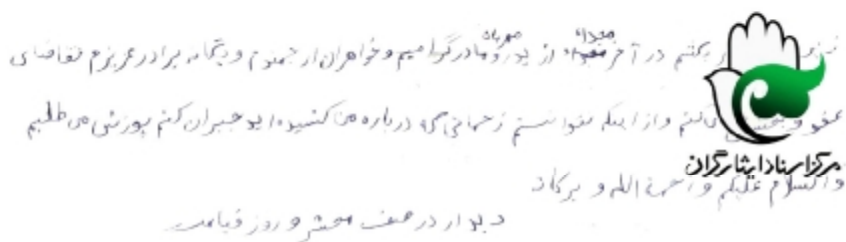 در آخر از پدر و مادر گرامیم و خواهران ارجمندم و یگانه برادر عزیزم تقاضای
عفو و بخشش می‌کنم و از اینکه نتوانستم زحماتی که درباره من کشیده‌اید جبران کنم پوزش می‌طلبم
والسلام علیکم و رحمة الله و برکاته
دیدار در صف محشر و روز قیامت
مرکز اسناد ایثارگران